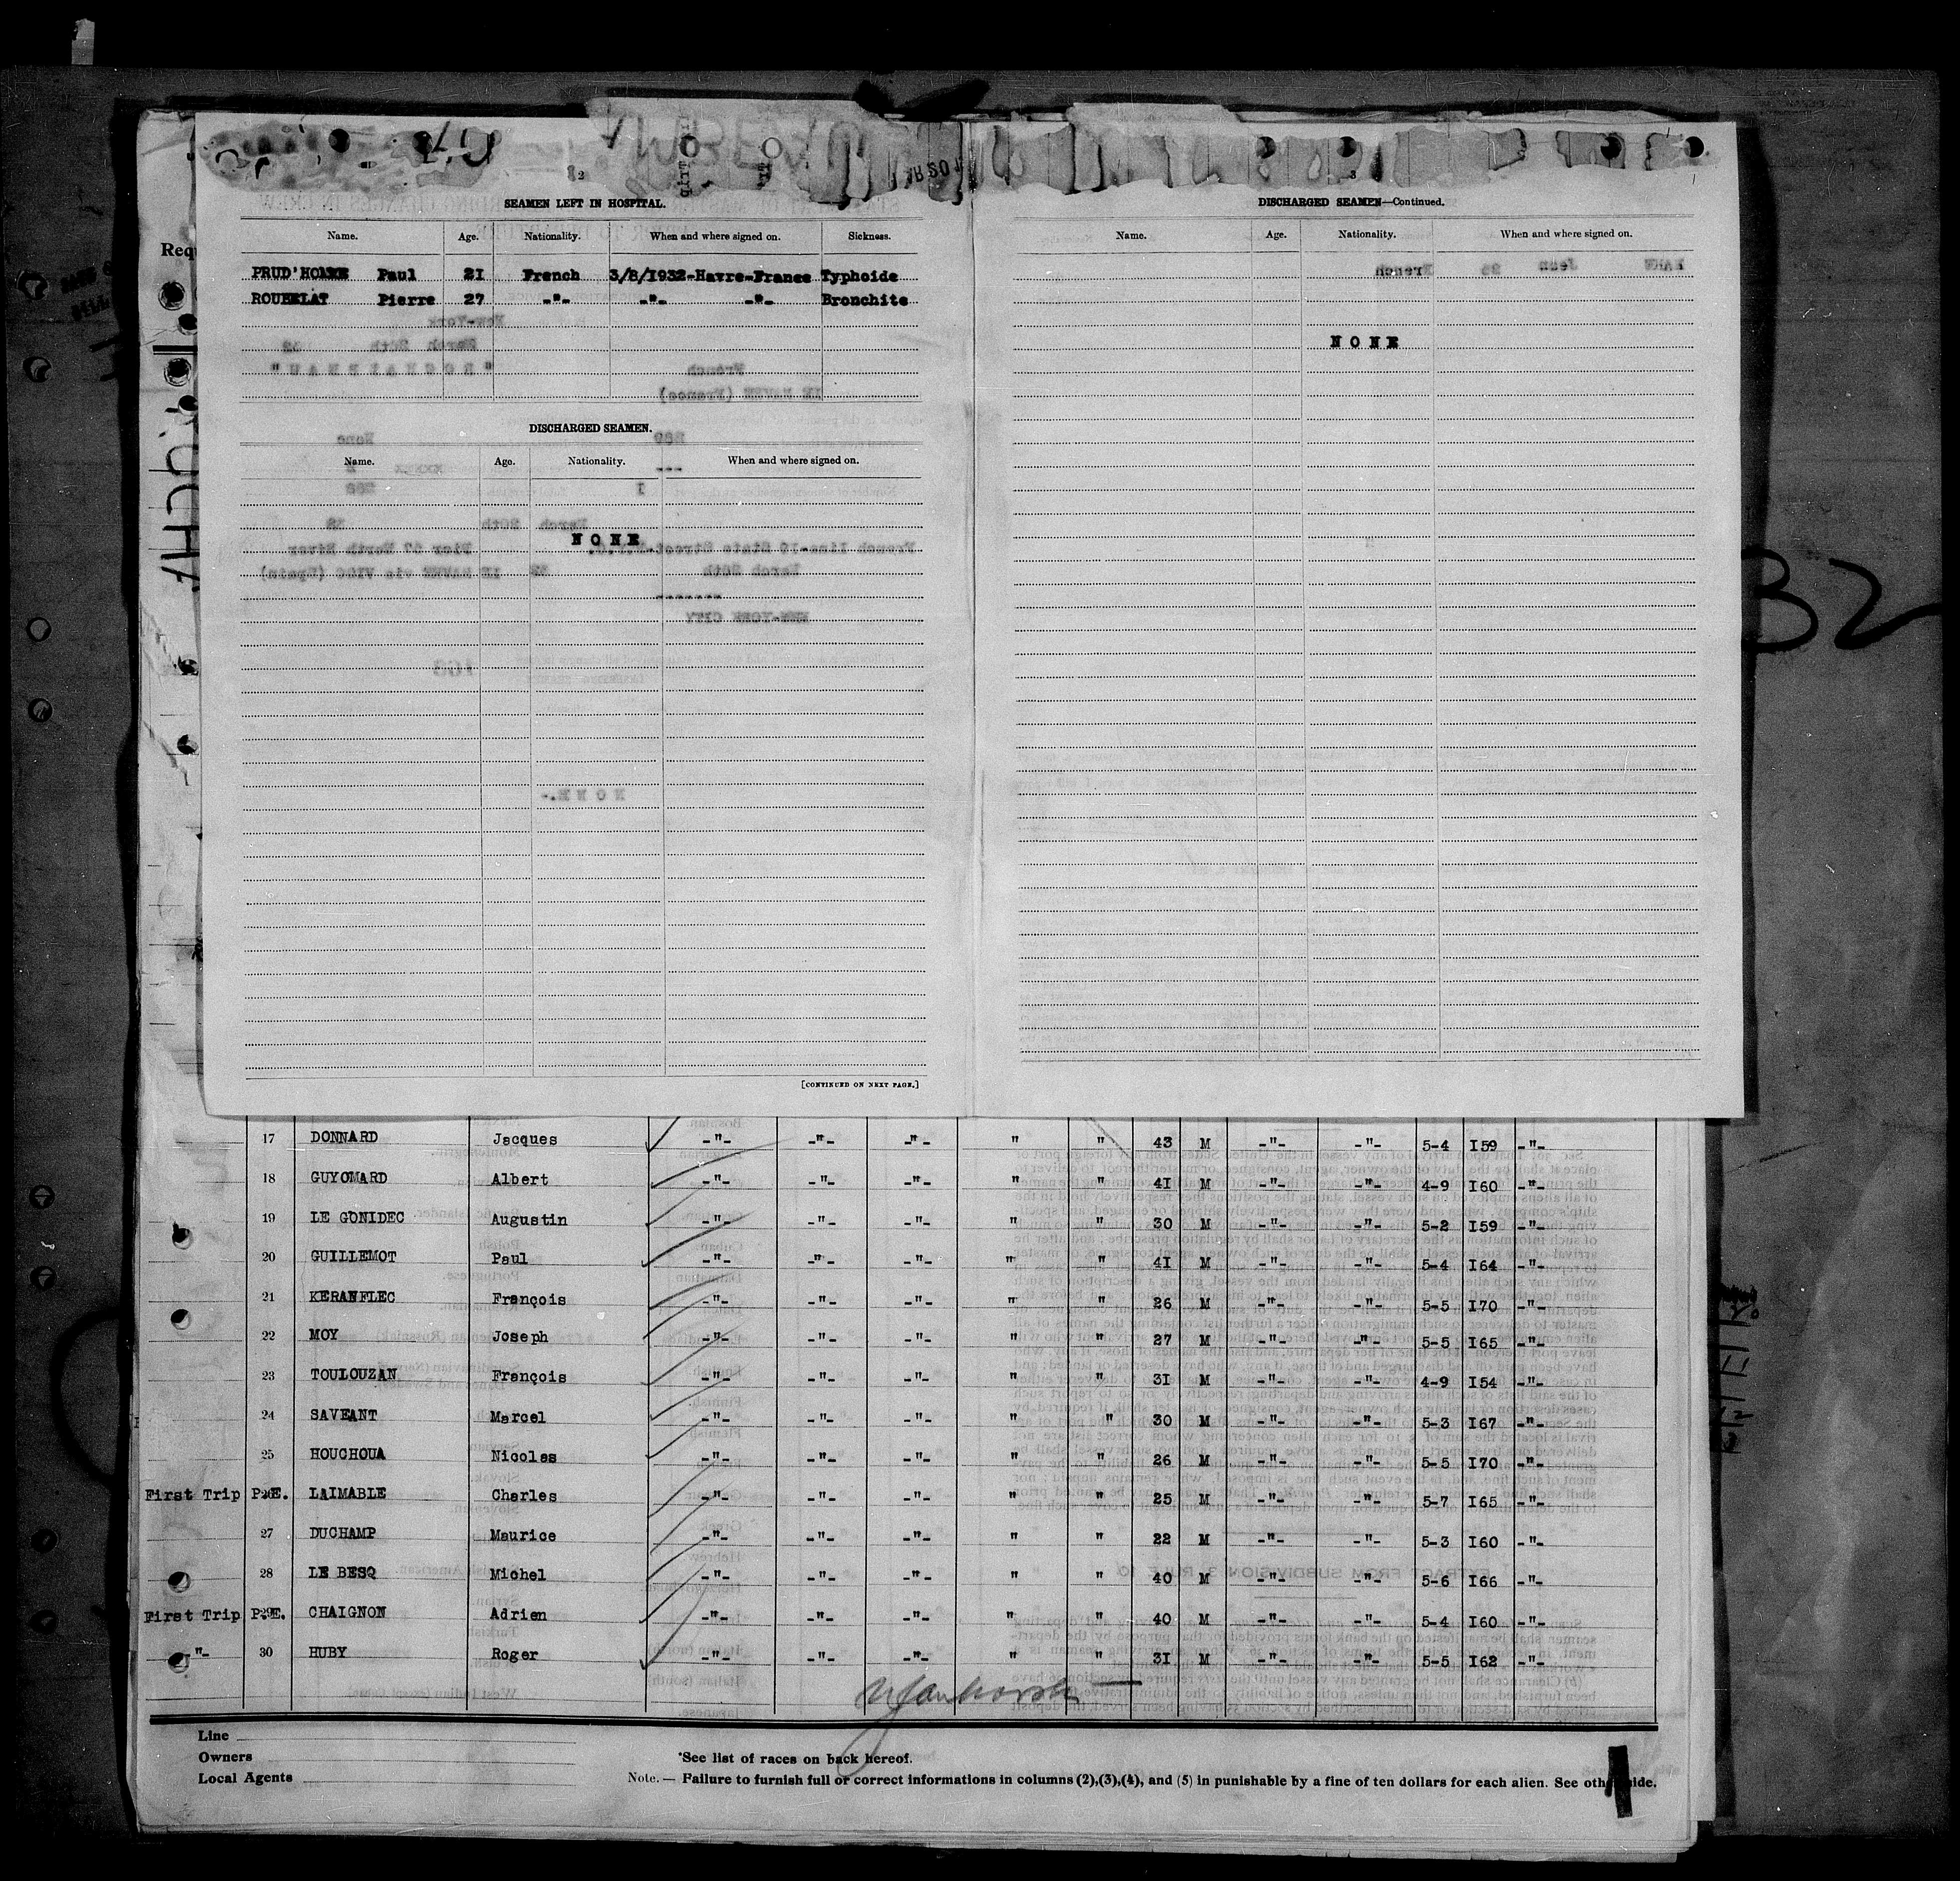 2
SEAMEN LEFT IN HOSPITAL.
Name. Age. Nationality. When and where signed on. Sickness.
PRUD'HOMME Paul 21 French 3/8/1932-Havre-France Typhoide
ROUBELAT Pierre 27 -"- -"- -"- Bronchite
DISCHARGED SEAMEN.
Name. Age. Nationality. When and where signed on.
NONE
[CONTINUED ON NEXT PAGE.]
3
DISCHARGED SEAMEN—Continued.
Name. Age. Nationality. When and where signed on.
NONE
32
17 DONNARD Jacques -"- -"- -"- " " 43 M -"- -"- 5-4 I59 -"-
18 GUYOMARD Albert -"- -"- -"- " " 4I M -"- -"- 4-9 I60 -"-
19 LE GONIDEC Augustin -"- -"- -"- " " 30 M -"- -"- 5-2 I59 -"-
20 GUILLEMOT Paul -"- -"- -"- " " 4I M -"- -"- 5-4 I64 -"-
21 KERANFLEC François -"- -"- -"- " " 26 M -"- -"- 5-5 I70 -"-
22 MOY Joseph -"- -"- -"- " " 27 M -"- -"- 5-5 I65 -"-
23 TOULOUZAN François -"- -"- -"- " " 3I M -"- -"- 4-9 I54 -"-
24 SAVEANT Marcel -"- -"- -"- " " 30 M -"- -"- 5-3 I67 -"-
25 HOUCHOUA Nicolas -"- -"- -"- " " 26 M -"- -"- 5-5 I70 -"-
First Trip P.E. 26 LAIMABLE Charles -"- -"- -"- " " 25 M -"- -"- 5-7 I65 -"-
27 DUCHAMP Maurice -"- -"- -"- " " 22 M -"- -"- 5-3 I60 -"-
28 LE BESQ Michel -"- -"- -"- " " 40 M -"- -"- 5-6 I66 -"-
First Trip P.E. 29 CHAIGNON Adrien -"- -"- -"- " " 40 M -"- -"- 5-4 I60 -"-
-"- 30 HUBY Roger -"- -"- -"- " " 3I M -"- -"- 5-5 I62 -"-
Line
Owners
Local Agents
*See list of races on back hereof.
Note.— Failure to furnish full or correct informations in columns (2),(3),(4), and (5) in punishable by a fine of ten dollars for each alien. See other side.